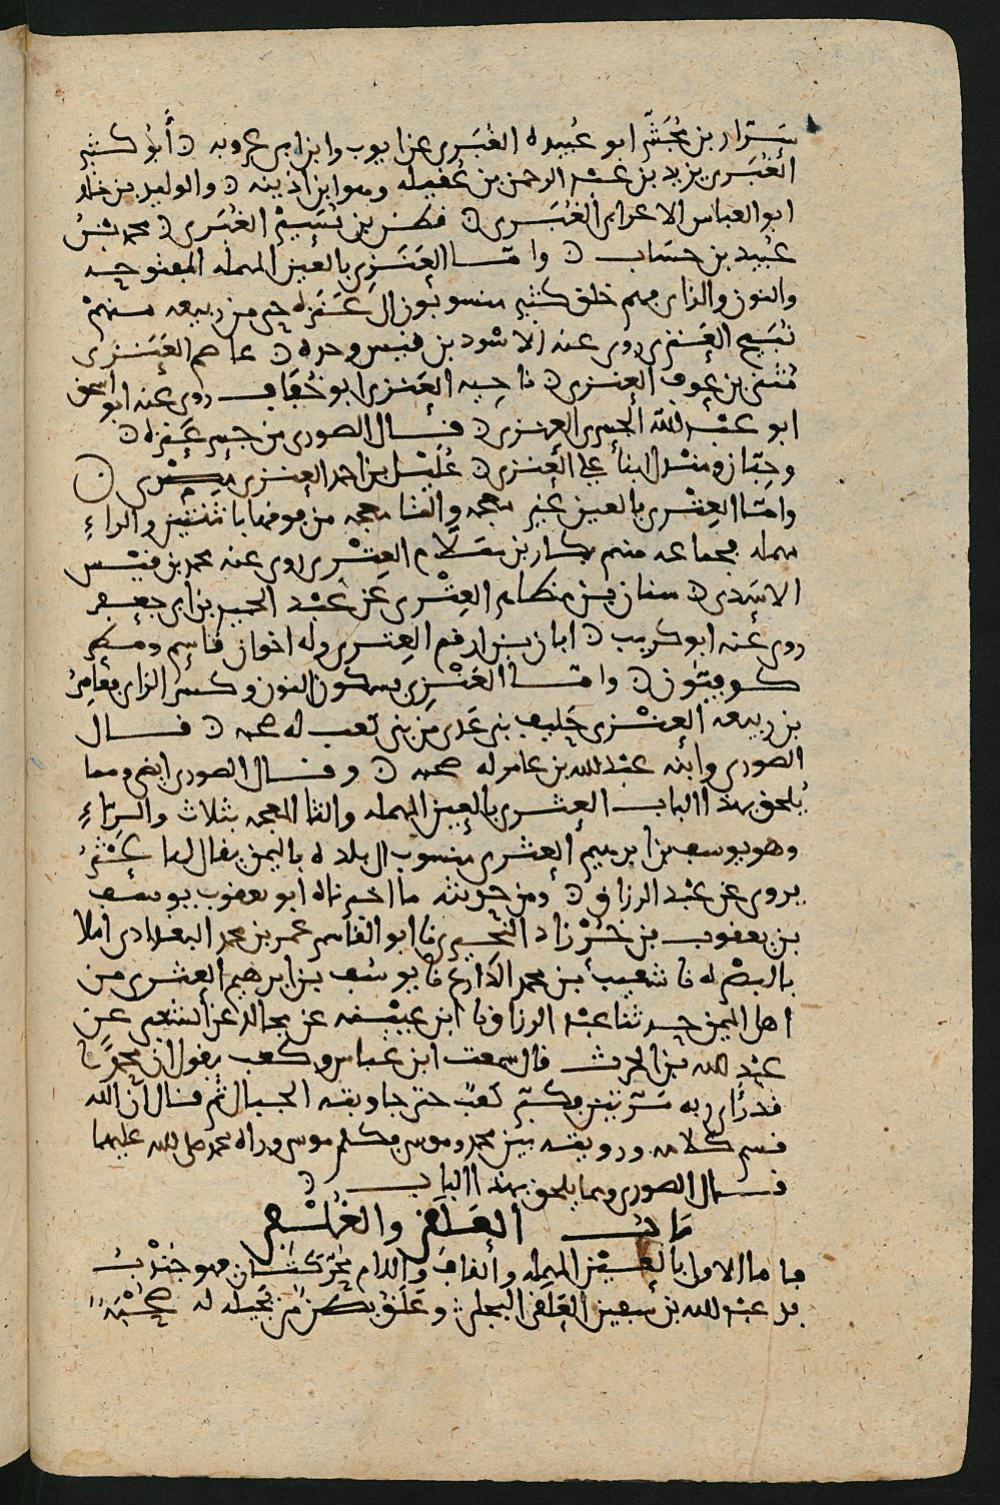 سَرّار بن مُجَشّر ابو عُبيده الغُبَري عن ايوب وابن ابي عروبه ۞ أبو كثير
الغُبَري يزيد بن عبد الرحمن بن غُفيله وهو ابن اذينه ۞ والوليد بن خلد
ابو العباس الاعرابي الغُبَري ۞ قطن بن نُسَيْر الغُبَري ۞ محمد بنُ
عبيد بن حسَاب ۞ وامّا العَنَزِي بالعين المهمله المفتوحه
والنون والزاي فهم خلق كثير منسوبون الى عَنَزه حي من ربيعه منهم
نُبَيح العَنَزي روى عنه الاسود بن قيس وحده ۞ عاصم العَنَزي
مُثنى بن عوف العنزي ۞ ناجيه العَنزي ابو خُفاف روى عنه ابو اسحق
ابو عبد الله الجسري العنزي ۞ قال الصوري من جسر عَنَزه ۞
وحِبّان ومندل ابنا علي العنزي ۞ عُلَيْل بن احمد العنزي مِصْري ۞
وامّا العِتْري بالعين غير معجمه والتا معجمه من فوقها باثنتين والراءِ
مهمله فجماعه منهم بكار بن سلّام العِتْري روى عنه محمد بن قيس
الاسَدي ۞ سنان بن مظاهر العِتْري عَن عَبْد الحميد بن ابي جعفر
روى عنه ابو كريب ۞ ابان بن ارقم العِتري وله اخوان قاسِم ومطر
كوفيّون ۞ وامّا العَنْزِي بسكون النون وكسر الزاي فعامِرُ
بن ربيعه العَنْزي حَليف بني عَدي من بني كعب له صحبه ۞ قال
الصوري وابنه عبد الله بن عامر له صحبه ۞ وقال الصوري ايضا ومما
يُلحق بهذا الباب العثري بالعين المهمله والثا المعجمه بثلاث والرّاءِ
وهو يوسف بن ابرهيم العثري منسوب الى بلده باليمن يقال لها عَثْرُ
يروي عن عبد الرزاق ۞ ومن حديثه ما اخبرناه ابو يعقوب يوسف
بن يعقوب بن خُرّزاذ النَجيرمي نا ابو القاسم عمر بن محمد البغدادي املا
بالبصره نا شعيب بن محمد الذارع نا يوسُف بن ابرهيم العثري من
اهل اليمن حدثنا عبد الرزاق نا ابن عيينه عن مجالد عن الشعبي عن
عبد الله بن الحرث قال سمعت ابن عباس وكعب يقول ان محمدًا
قد رَأى ربه مَرّتين فكبّر كعبٌ حتى جاوبته الجبال ثم قال ان الله
قسم كلامه ورويته بين محمد وموسى فكلم موسى وراه محمد صلى الله عليهما
قال الصوري ومما يلحق بهذا الباب ۞
بَابُ العَلَقي والغُلْفي
فاما الاول بالعين المهمله والقاف واللام محَرّكتان فهو جُنْدبُ
بن عبد الله بن سفين العَلَقي البجلي وعَلَق بطنٌ من بَجيله له صُحْبَهٌ